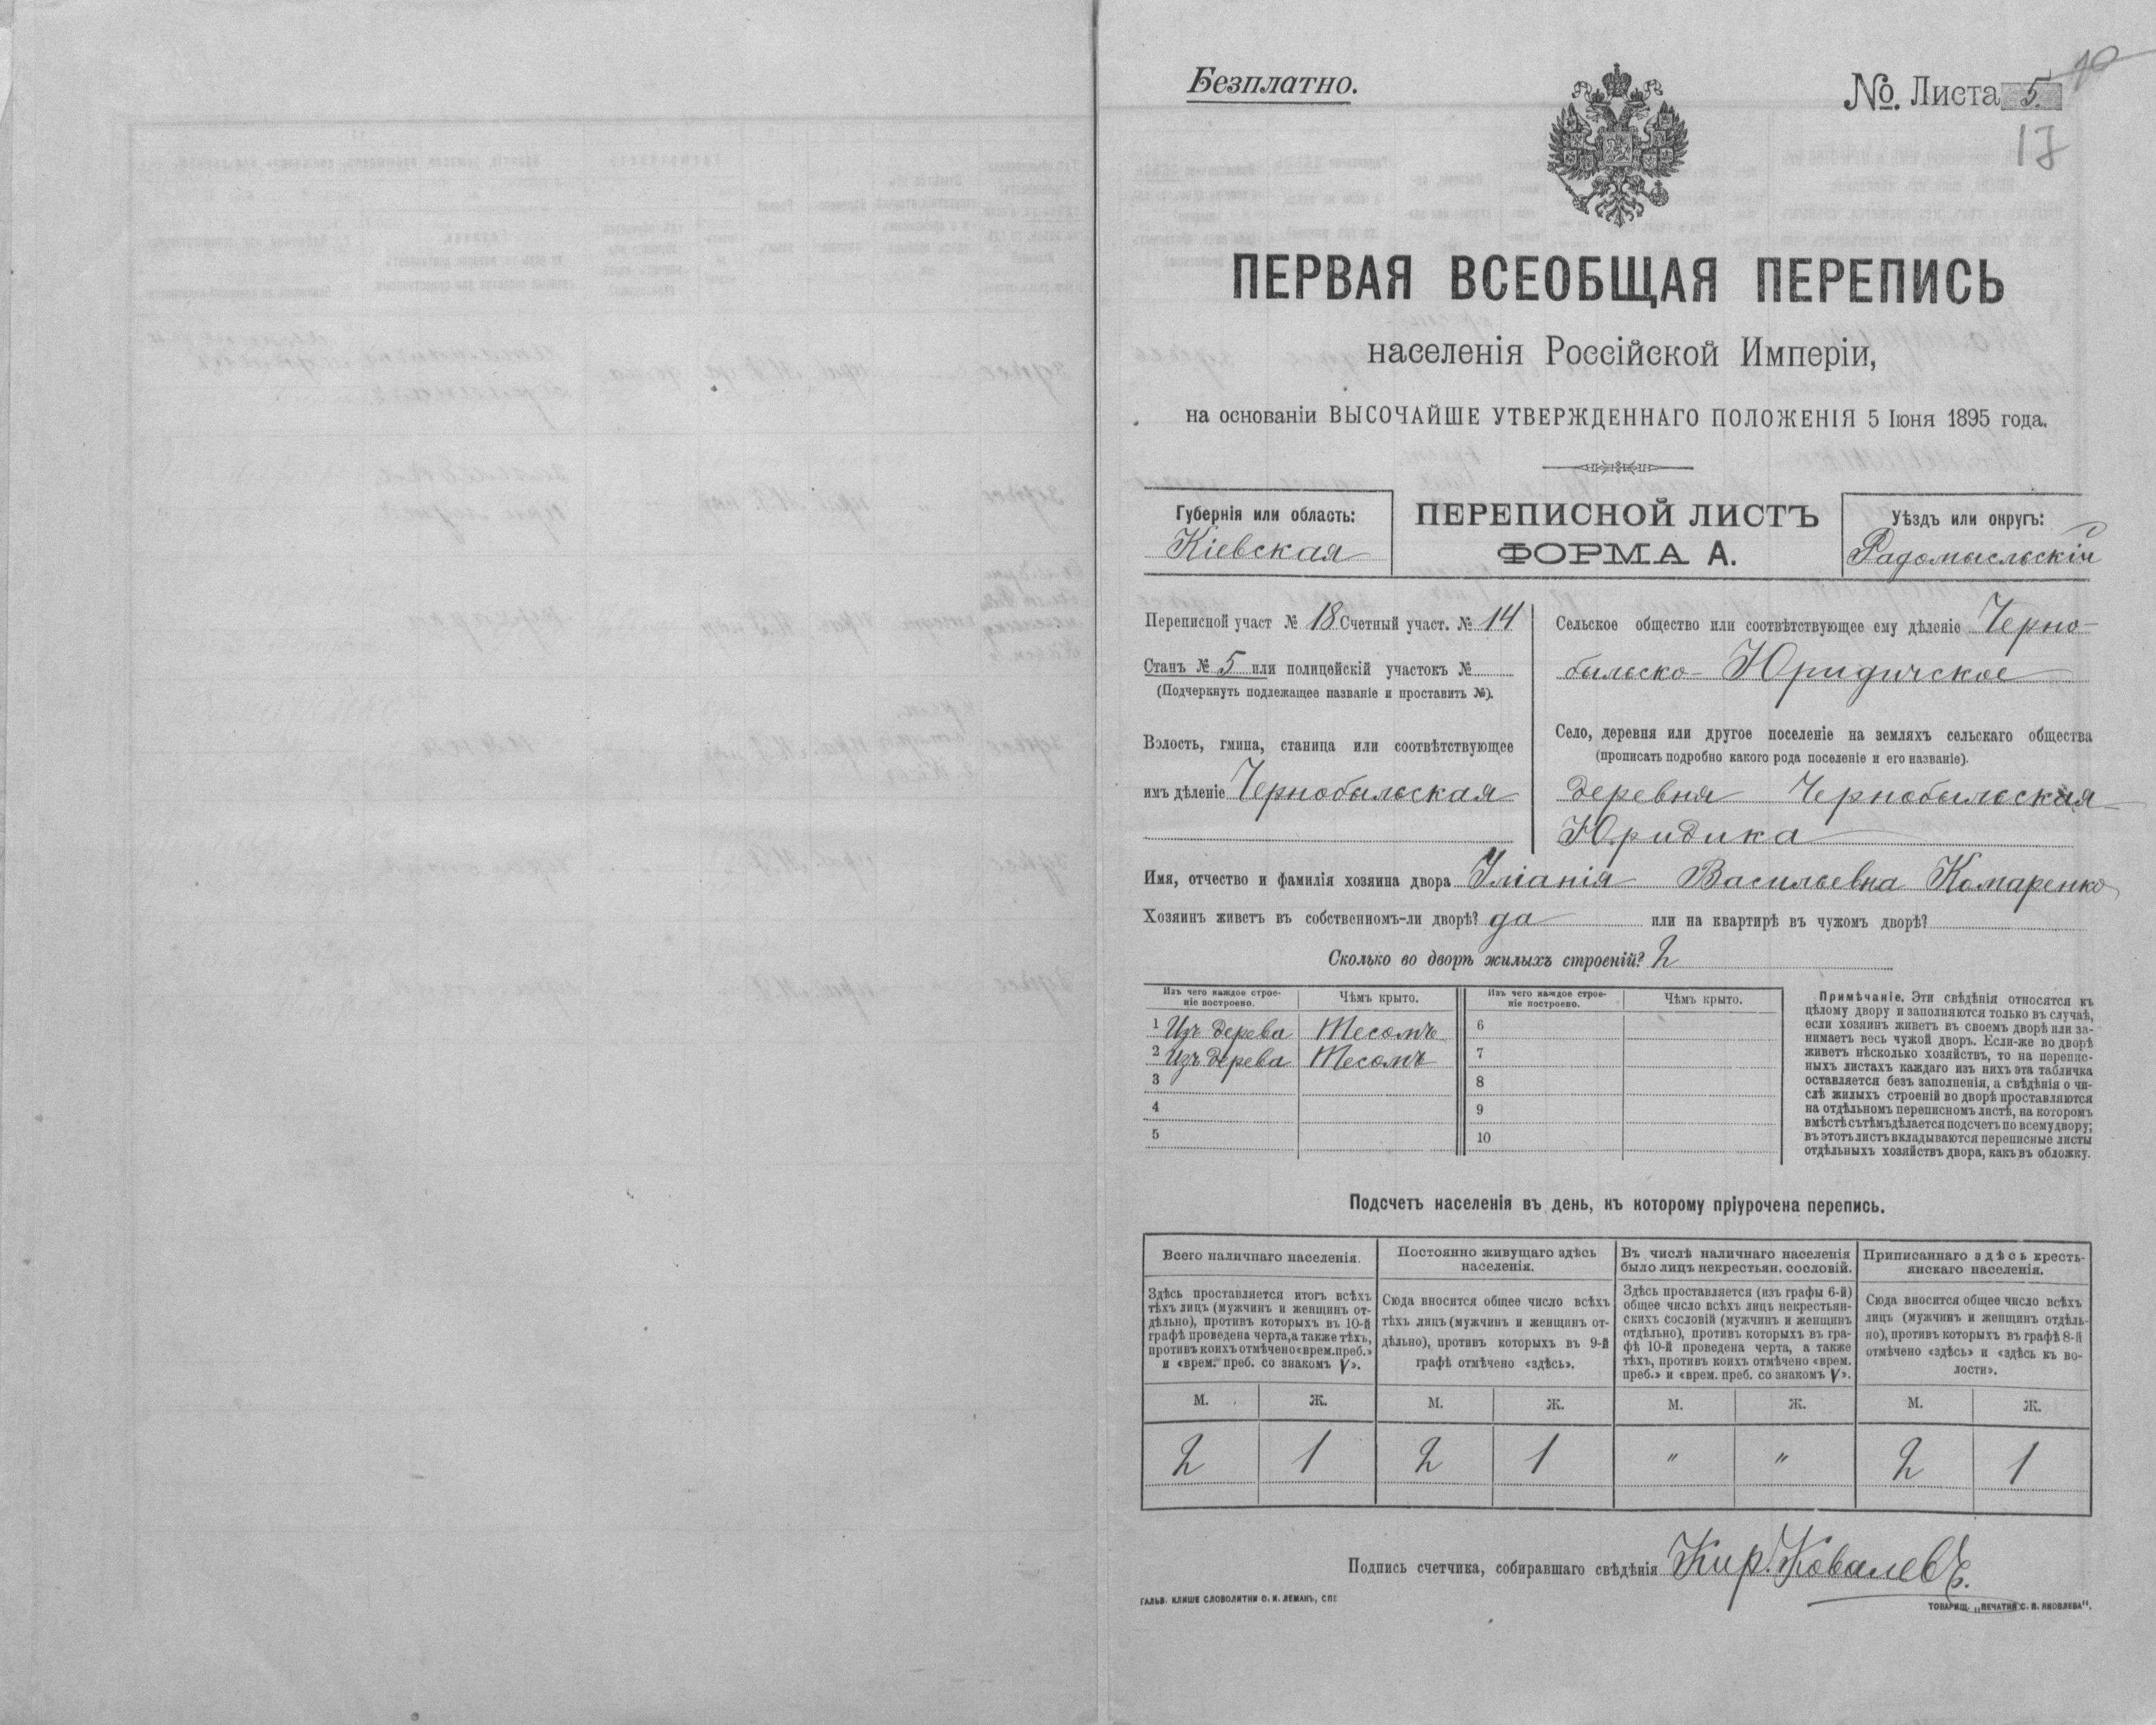 Безплатно.
№. Листа 5.
10
17
ПЕРВАЯ ВСЕОБЩАЯ ПЕРЕПИСЬ
населенія Россійской Имперіи,
на основаніи ВЫСОЧАЙШЕ УТВЕРЖДЕННАГО ПОЛОЖЕНІЯ 5 Іюня 1895 года.
Губернія или область:
Кіевская
ПЕРЕПИСНОЙ ЛИСТЪ
ФОРМА А.
Уѣздъ или округъ:
Радомысльскій
Переписной участ № 18 Счетный участ. № 14
Станъ № 5 или полицейскій участокъ №
(Подчеркнуть подлежащее названіе и проставить №).
Волость, гмина, станица или соотвѣтствующее
имъ дѣленіе Чернобыльская
Сельское общество или соотвѣтствующее ему дѣленіе Черно-
быльско-Юридичское
Село, деревня или другое поселеніе на земляхъ сельскаго общества
(прописать подробно какого рода поселеніе и его названіе).
деревня Чернобыльская
Юридика
Имя, отчество и фамилія хозяина двора Уліанія Васильевна Комаренко
Хозяинъ живетъ въ собственномъ-ли дворѣ? да или на квартирѣ въ чужомъ дворѣ?
Сколько во дворѣ жилыхъ строеній? 2
Изъ чего каждое строе-
ніе построено.
Чѣмъ крыто.
Изъ чего каждое строе-
ніе построено.
Чѣмъ крыто.
1 Изъ дерева Тесомъ 6
2 Изъ дерева Тесомъ 7
3 8
4 9
5 10
Примѣчаніе. Эти свѣдѣнія относятся къ
цѣлому двору и заполняются только въ случаѣ,
если хозяинъ живетъ въ своемъ дворѣ или за-
нимаетъ весь чужой дворъ. Если-же во дворѣ
живетъ нѣсколько хозяйствъ, то на перепис-
ныхъ листахъ каждаго изъ нихъ эта табличка
оставляется безъ заполненія, а свѣдѣнія о чи-
слѣ жилыхъ строеній во дворѣ проставляются
на отдѣльномъ переписномъ листѣ, на которомъ
вмѣстѣ съ тѣмъ дѣлается подсчетъ по всему двору;
въ этотъ листъ вкладываются переписные листы
отдѣльныхъ хозяйствъ двора, какъ въ обложку.
Подсчетъ населенія въ день, къ которому пріурочена перепись.
Всего наличнаго населенія.
Здѣсь проставляется итогъ всѣхъ
тѣхъ лицъ (мужчинъ и женщинъ от-
дѣльно), противъ которыхъ въ 10-й
графѣ проведена черта, а также тѣхъ,
противъ коихъ отмѣчено «врем. преб.»
и «врем. преб. со знакомъ V».
Постоянно живущаго здѣсь
населенія.
Сюда вносится общее число всѣхъ
тѣхъ лицъ (мужчинъ и женщинъ от-
дѣльно), противъ которыхъ въ 9-й
графѣ отмѣчено «здѣсь».
Въ числѣ наличнаго населенія
было лицъ некрестьян. сословій.
Здѣсь проставляется (изъ графы 6-й)
общее число всѣхъ лицъ некрестьян-
скихъ сословій (мужчинъ и женщинъ
отдѣльно), противъ которыхъ въ гра-
фѣ 10-й проведена черта, а также
тѣхъ, противъ коихъ отмѣчено «врем.
преб.» и «врем. преб. со знакомъ V».
Приписаннаго здѣсь кресть-
янскаго населенія.
Сюда вносится общее число всѣхъ
лицъ (мужчинъ и женщинъ отдѣль-
но), противъ которыхъ въ графѣ 8-й
отмѣчено «здѣсь» и «здѣсь къ во-
лости».
М. Ж. М. Ж. М. Ж. М. Ж.
2 1 2 1 " " 2 1
Подпись счетчика, собиравшаго свѣдѣнія Кир. Ковалевъ.
ГАЛЬВ. КЛИШЕ СЛОВОЛИТНИ О. И. ЛЕМАНЪ, СПБ
ТОВАРИЩ. „ПЕЧАТНЯ С. П. ЯКОВЛЕВА".